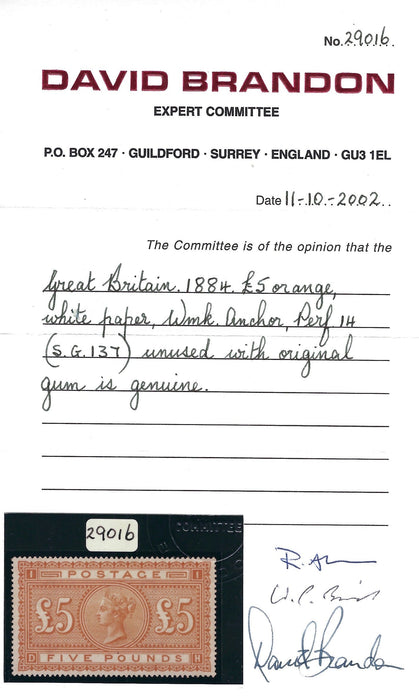 No. 29016.
DAVID BRANDON
EXPERT COMMITTEE
P.O. BOX 247 · GUILDFORD · SURREY · ENGLAND · GU3 1EL
Date 11-10-2002.
The Committee is of the opinion that the
Great Britain. 1884. £5 orange,
white paper, Wmk. Anchor, Perf 14
(S.G.137) unused with original
gum is genuine.
29016
COMMITTEE
I POSTAGE I
£5 £5
D FIVE POUNDS H
David Brandon